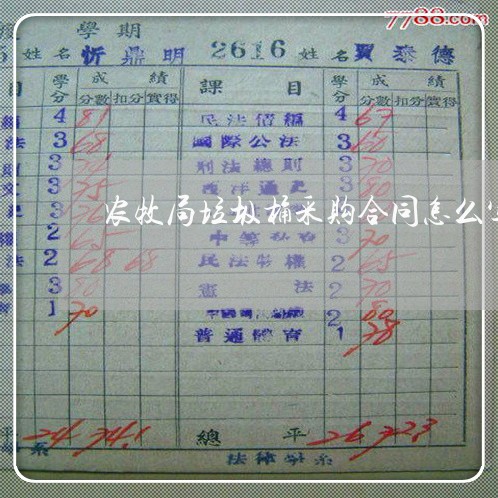 7788.com
學期
姓名 忻鼎明 2616 姓名 賈泰德
目 學分 成績 課目 學分 成績
分數 扣分 實得 分數 扣分 實得
4 81 民法債編 4 67
法 3 68 國際公法 3 60
3 刑法總則 3 70
3 75 西洋通史 3 80
3
2 65 3 70
法 2 68 68 民法物權 2 65
3 80 憲法 2 70
1 70 2 80
普通體育 1 78
农牧局垃圾桶采购合同怎么写
平 24 74.1 總平 26 72.3
系 法律學系